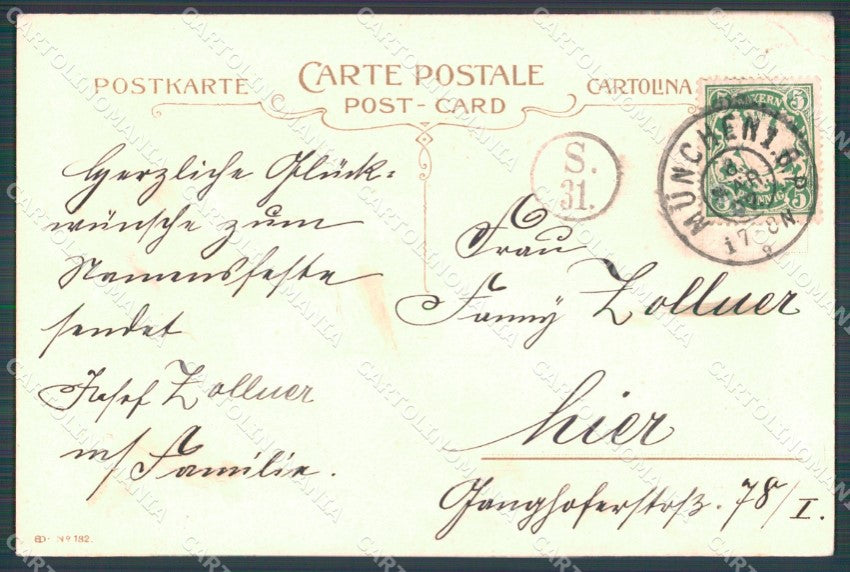 POSTKARTE
CARTE POSTALE
POST-CARD
CARTOLINA
BAYERN
5 5
5 5
PFENNIG
MÜNCHEN 1. B.P.
8 MRZ
17-8 N
S.
31.
Herzliche Glück-
wünsche zum
Namensfeste
sendet
Josef Zollner
m/ Familie.
Frau
Fanny Zollner
hier
Ganghoferstrß. 78/I.
ED- No 182.
CARTOLINOMANIA